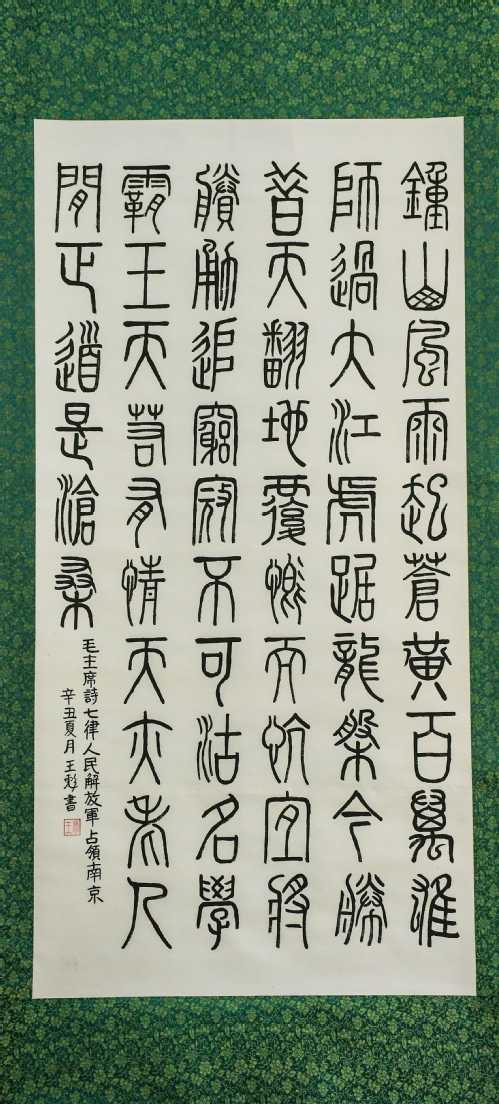 鐘山風雨起蒼黃百萬雄
師過大江虎踞龍槃今勝
昔天翻地覆慨而慷宜將
賸勇追窮寇不可沽名學
霸王天若有情天亦老人
閒正道是滄桑
毛主席詩七律人民解放軍占領南京
辛丑夏月王書